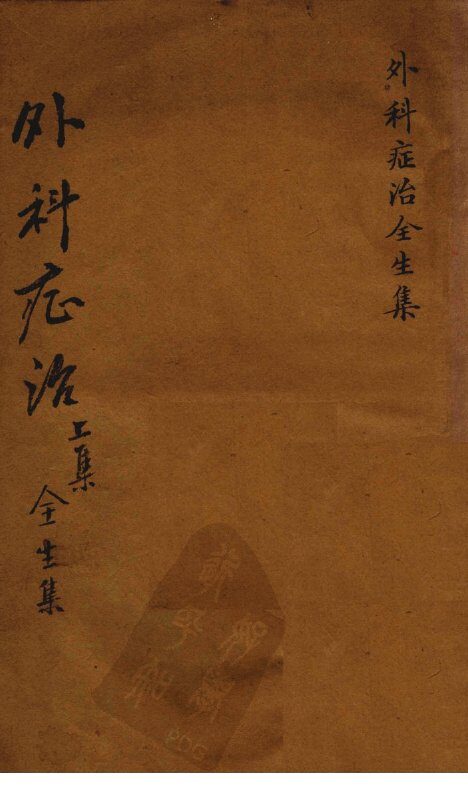 外科症治全生集
外科症治
上集
全生集